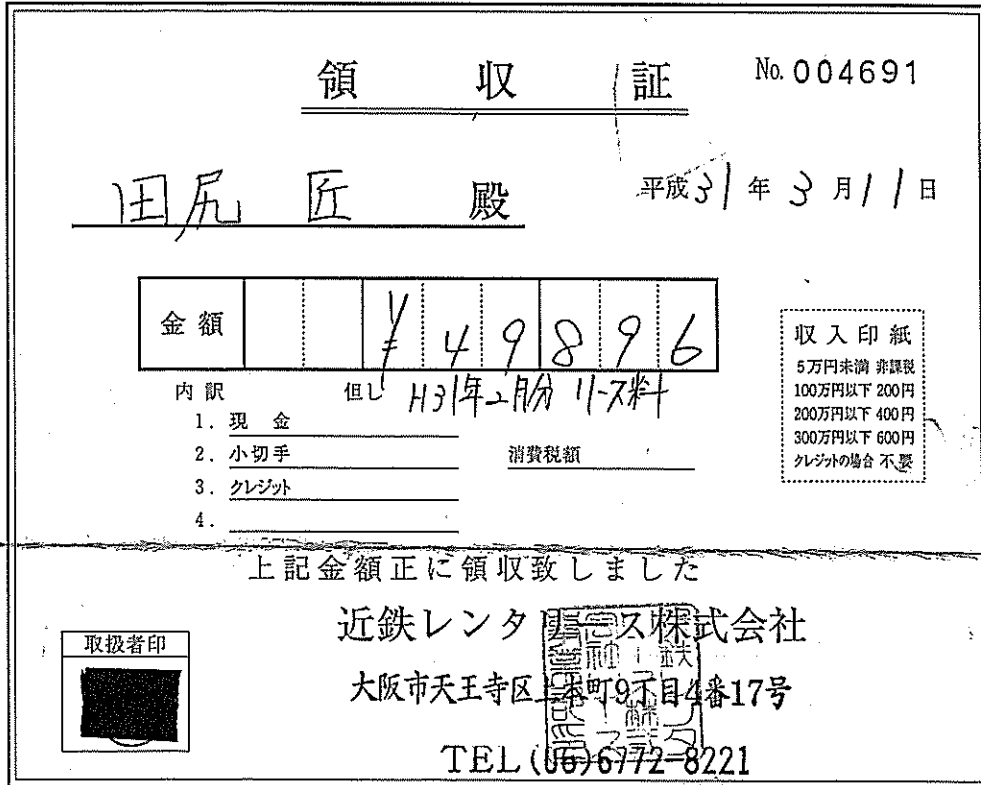 領収証 No. 004691
田尻 匠 殿 平成31年3月11日
金額 ¥49896
内訳 但し H31年2月分 リース料
1. 現金
2. 小切手 消費税額
3. クレジット
4.
収入印紙
5万円未満 非課税
100万円以下 200円
200万円以下 400円
300万円以下 600円
クレジットの場合 不要
上記金額正に領収致しました
近鉄レンタリース株式会社
大阪市天王寺区上本町9丁目4番17号
TEL (06)6772-8221
取扱者印